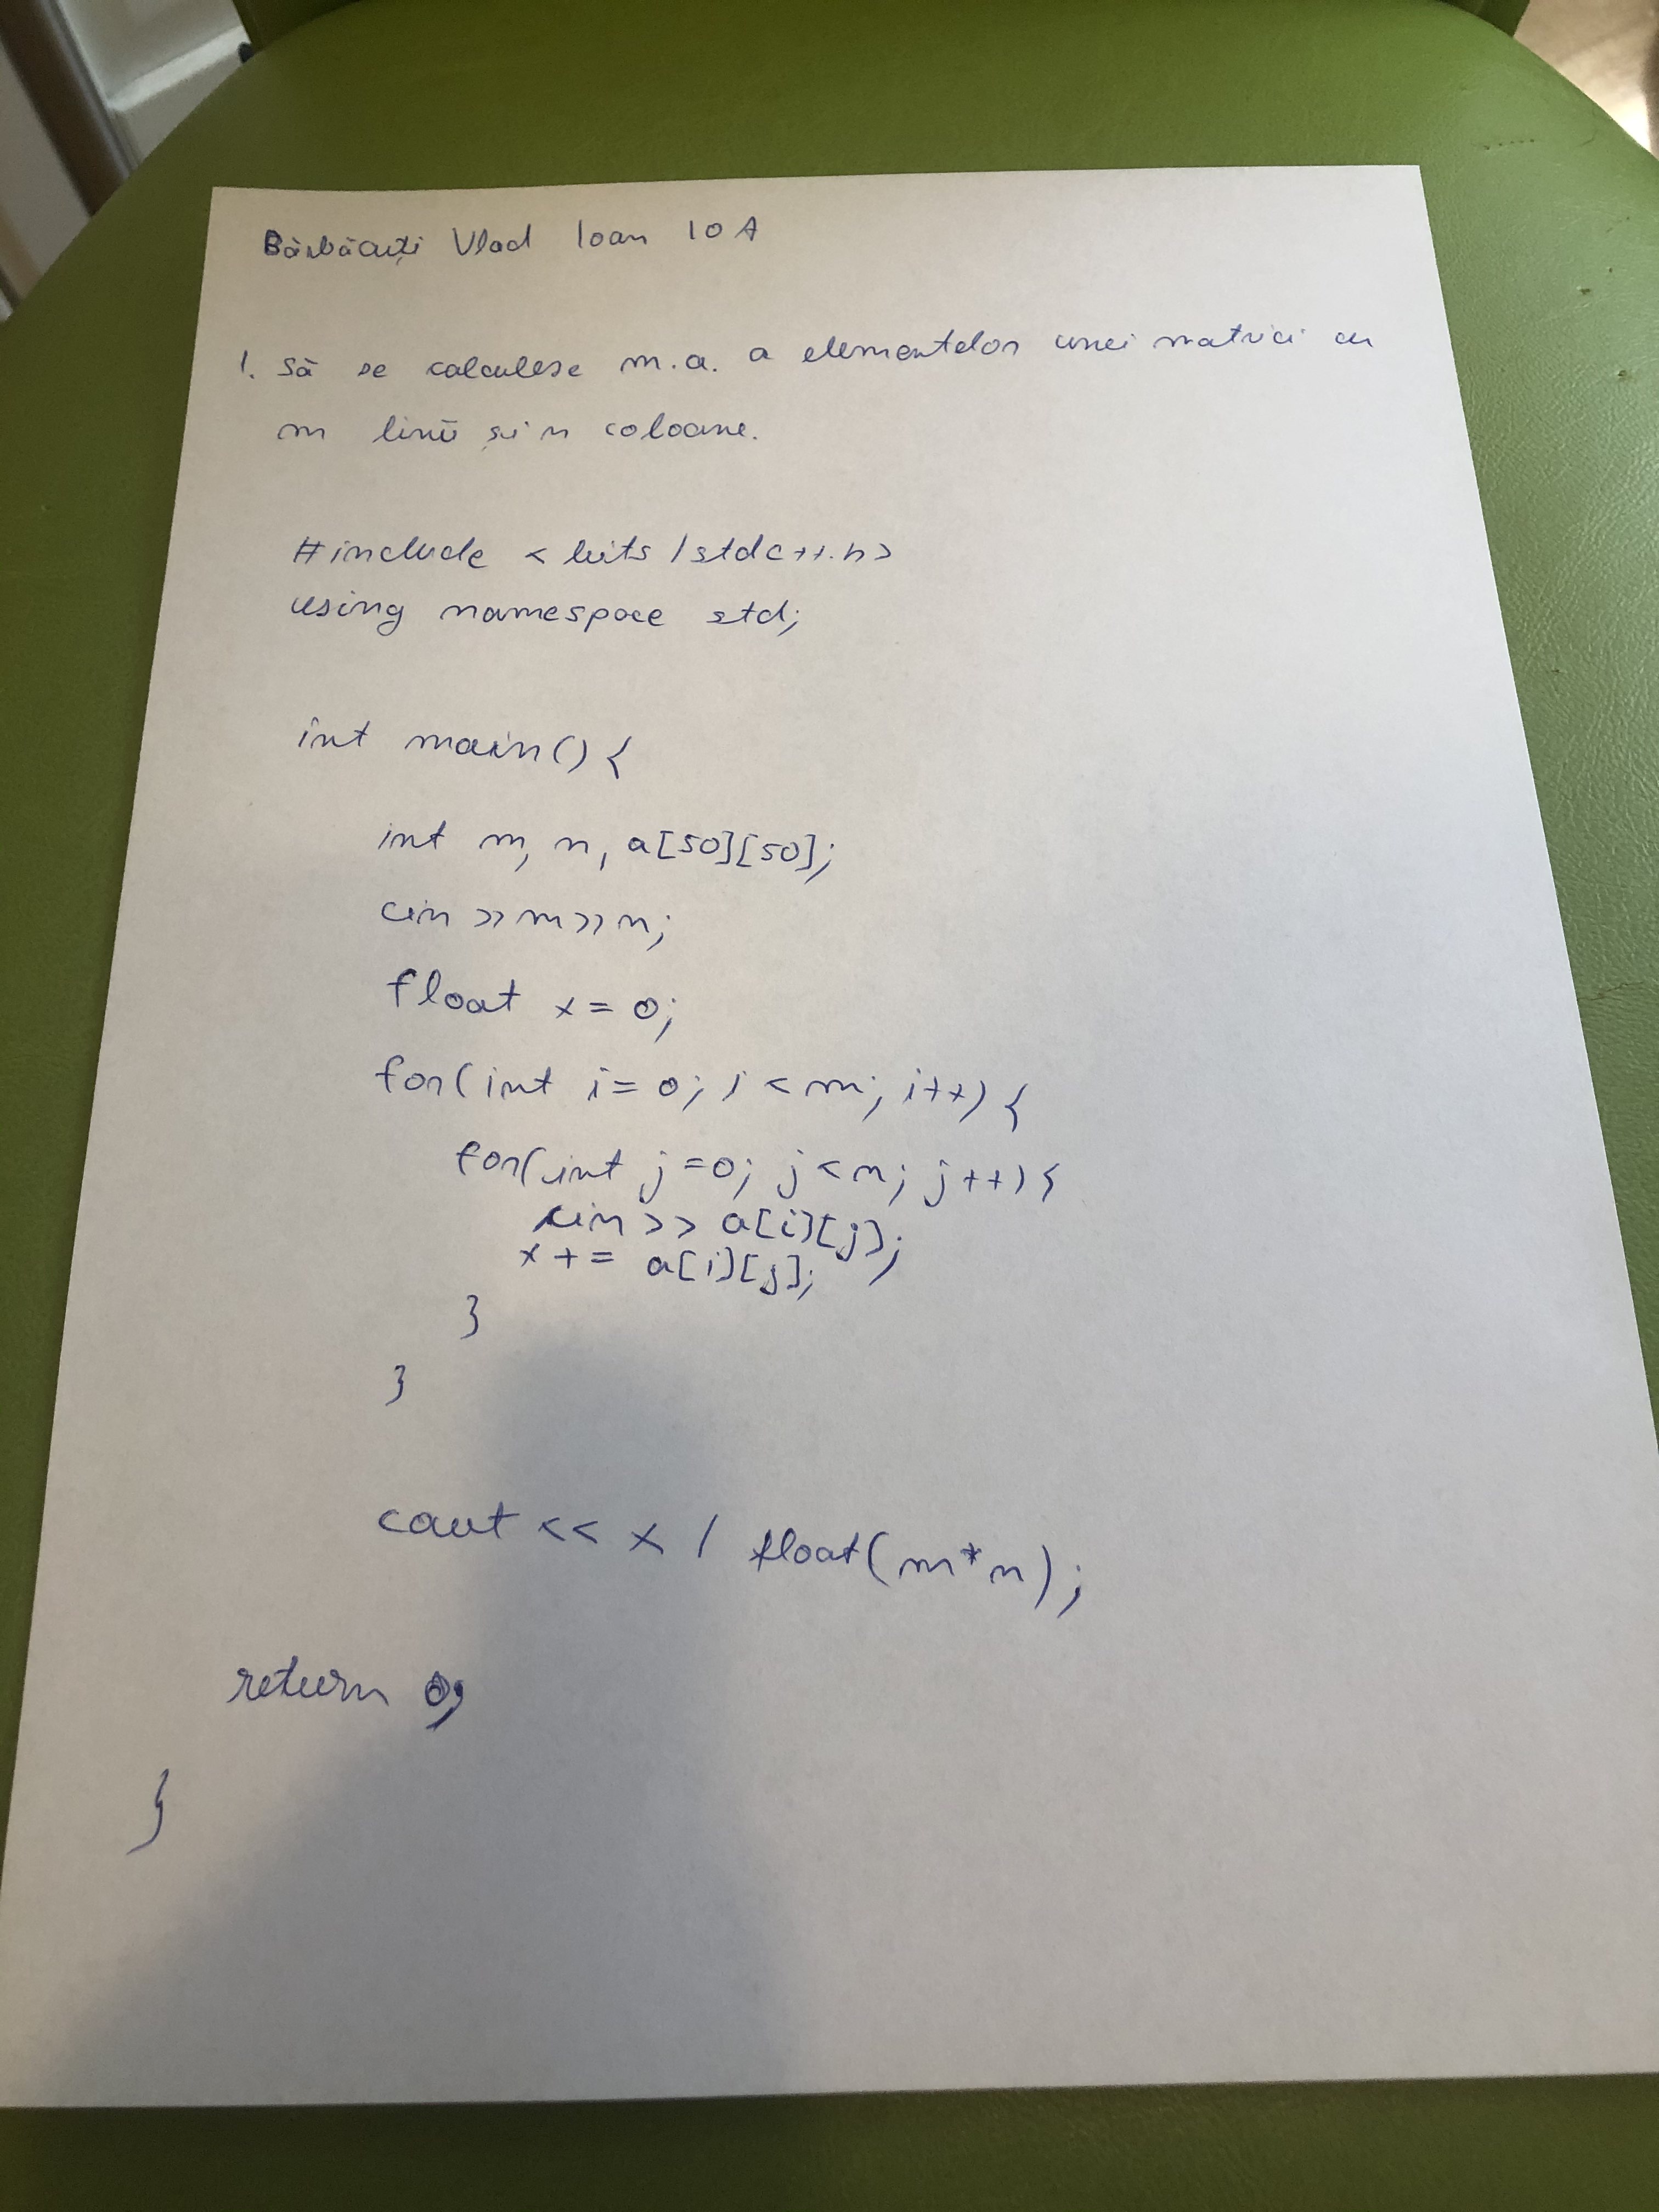 Bărbăcuți Vlad Ioan 10 A
1. Să se calculese m.a. a elementelor unei matrici cu
m linii și n coloane.
#include <bits/stdc++.h>
using namespace std;
int main(){
int m, n, a[50][50];
cin >> m >> n;
float x = 0;
for(int i = 0; i < m; i++) {
for(int j = 0; j < n; j++) {
cin >> a[i][j];
x += a[i][j];
}
}
cout << x / float(m*n);
return 0;
}